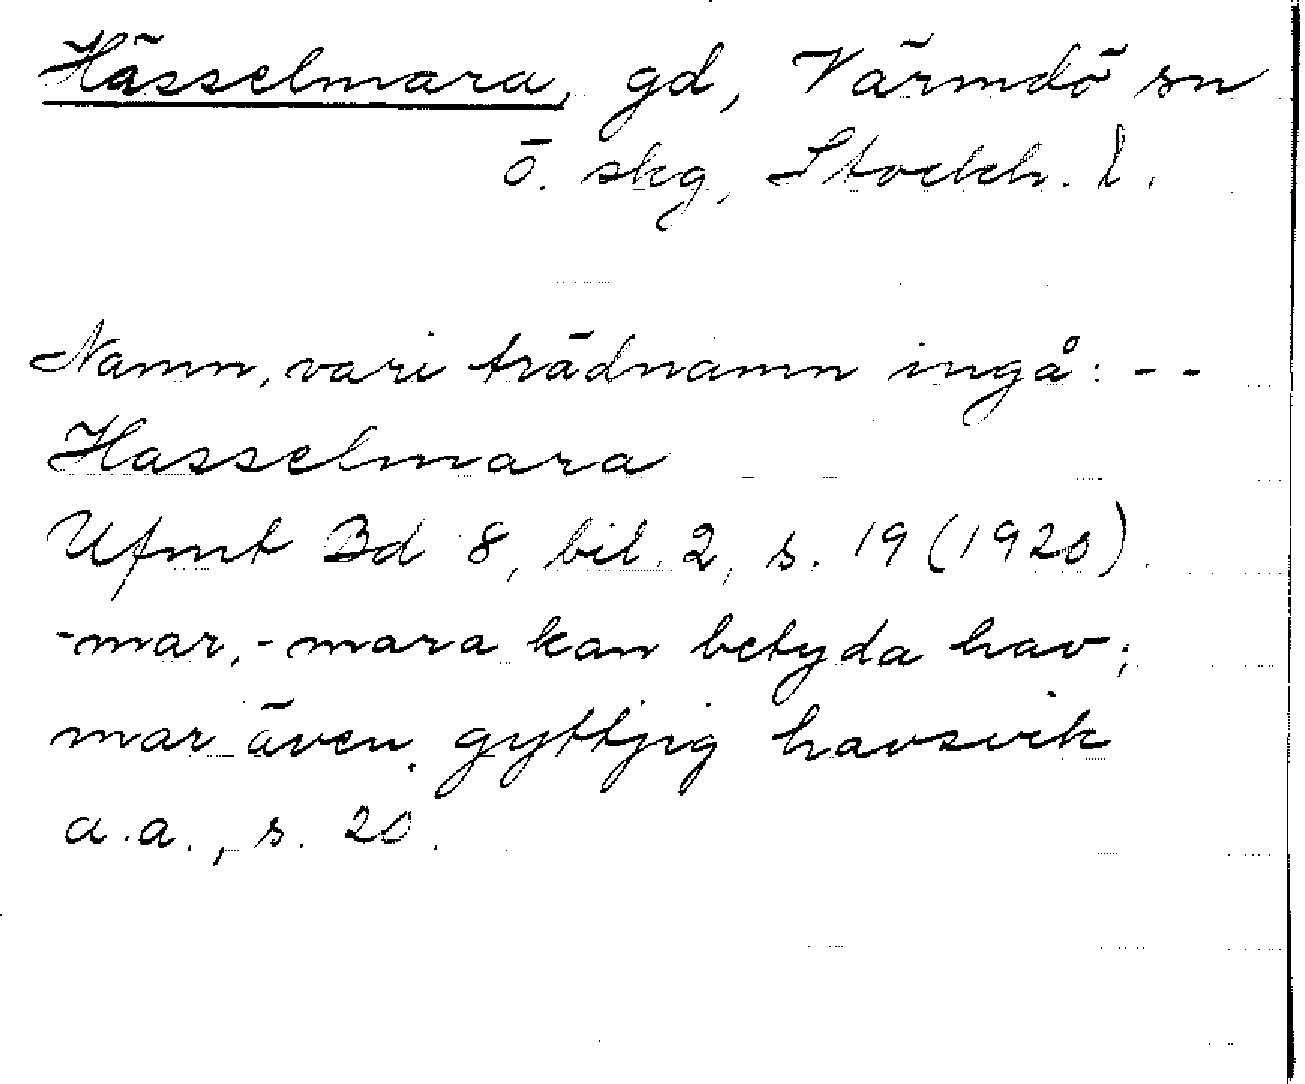 Hässelmara, gd, Värmdö sn
ö. skg, Stockh. l.
Namn, vari trädnamn ingå: --
Hasselmara
Ufmt Bd 8, bil. 2, s. 19 (1920).
-mar, -mara kan betyda hav;
mar även gyttjig havsvik
a.a., s. 20.